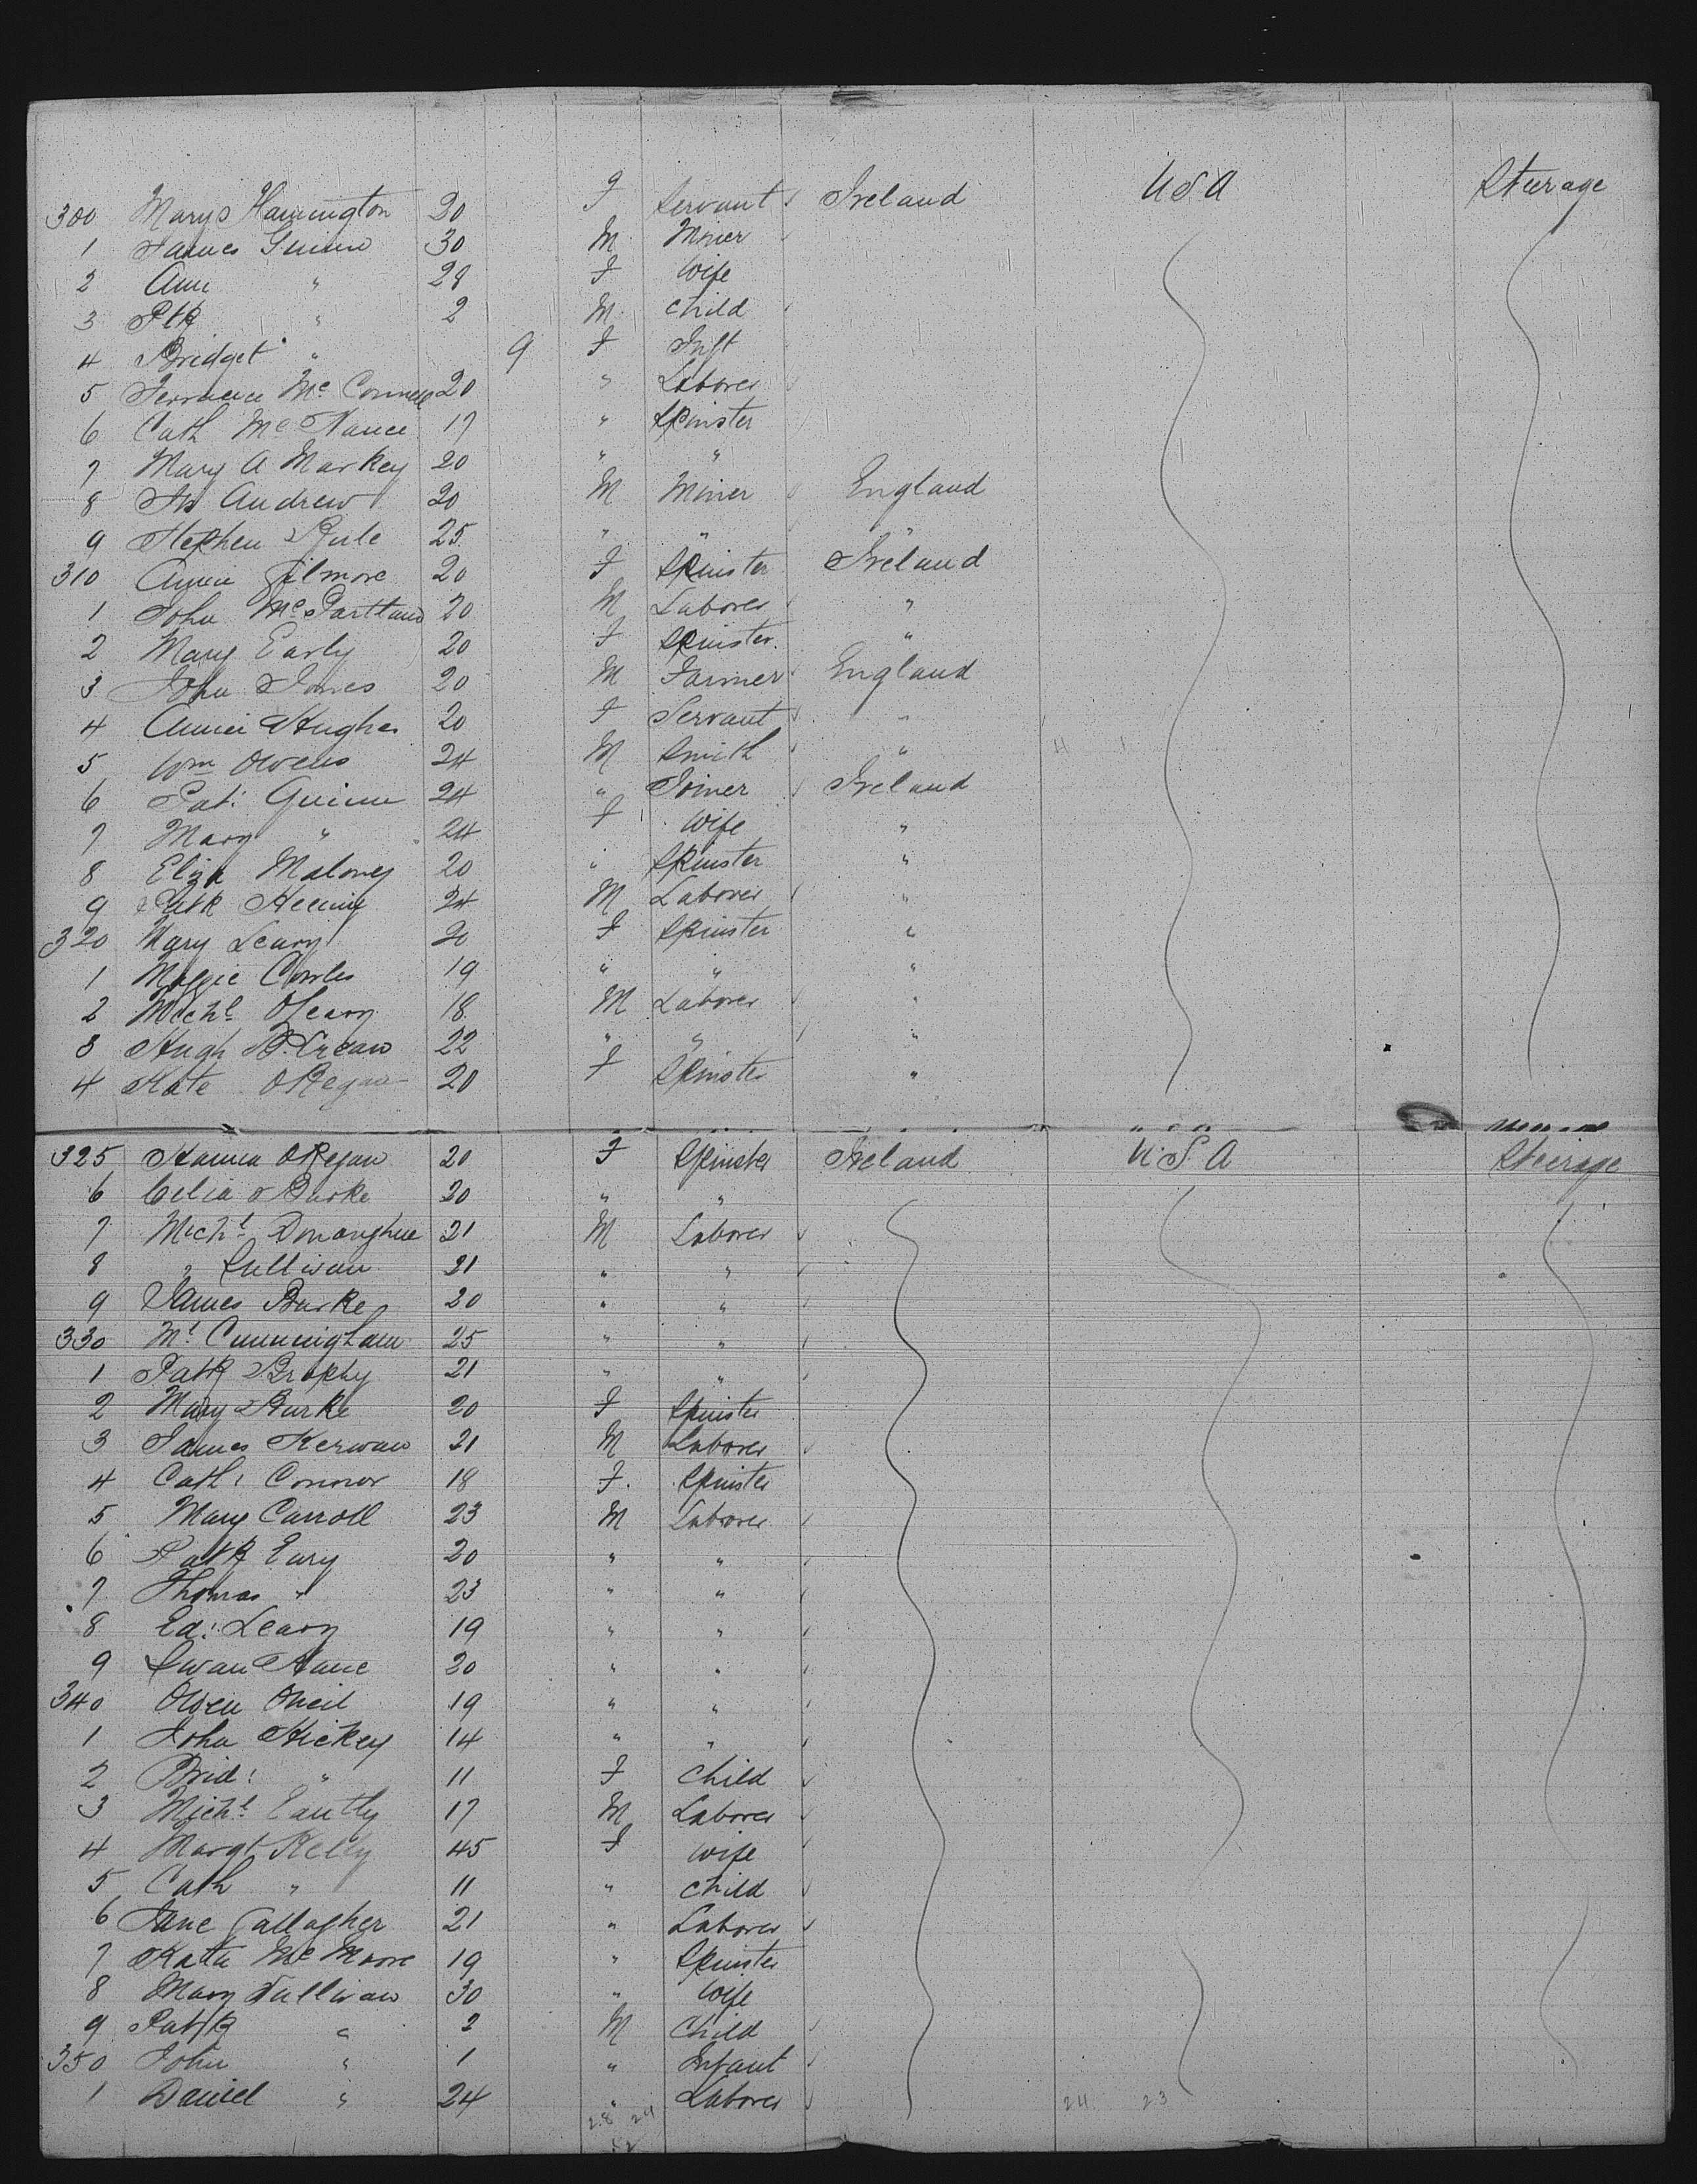 300 Mary Harrington 20 F Servant Ireland USA Steerage
1 James Guinn 30 M Miner
2 Ann " 28 F Wife
3 Ptk " 2 M Child
4 Bridget " 9 F Inft
5 Terrance Mc Connell 20 " Laborer
6 Cath Mc 17 " Spinster
7 Mary A Markey 20 " "
8 Andrew 20 M Miner England
9 Stephen Rule 25 " " "
310 Annie Gilmore 20 F Spinster Ireland
1 John McPartland 20 M Laborer "
2 Mary Early 20 F Spinster "
3 John Jones 20 M Farmer England
4 Annie Hughes 20 F Servant "
5 Wm Owens 24 M Smith "
6 Pat: Guinn 24 " Joiner Ireland
7 Mary " 24 F Wife "
8 Eliza Maloney 20 " Spinster "
9 Patk 24 M Laborer "
320 Mary Leary 20 F Spinster "
1 Maggie 19 " " "
2 Michl OLeary 18 M Laborer "
3 Hugh 22 " " "
4 Kate ORegan 20 F Spinster "
325 Hanna ORegan 20 F Spinster Ireland U.S.A Steerage
6 Celia Burke 20 " "
7 Michl Donaughue 21 M Laborer
8 " Sullivan 21 " "
9 James Burke 20 " "
330 Ml Cunningham 25 " "
1 Patk Brophy 21 " "
2 Mary Burke 20 F Spinster
3 James Kerwan 21 M Laborer
4 Cath: Connor 18 F. Spinster
5 Mary Carroll 23 M Laborer
6 Patk Eary 20 " "
7 Thomas " 23 " "
8 Ed: Leary 19 " "
9 20 " "
340 Owen Oneil 19 " "
1 John Hickey 14 " "
2 Brid: " 11 F Child
3 Michl 17 M Laborer
4 Margt Kelly 45 F Wife
5 Cath " 11 " Child
6 Jane Gallagher 21 " Laborer
7 Kate Mc Moore 19 " Spinster
8 Mary Sullivan 30 " Wife
9 Patk " 2 M Child
350 John " 1 " Infant
1 Daniel " 24 " Laborer
28 24 24 23
52